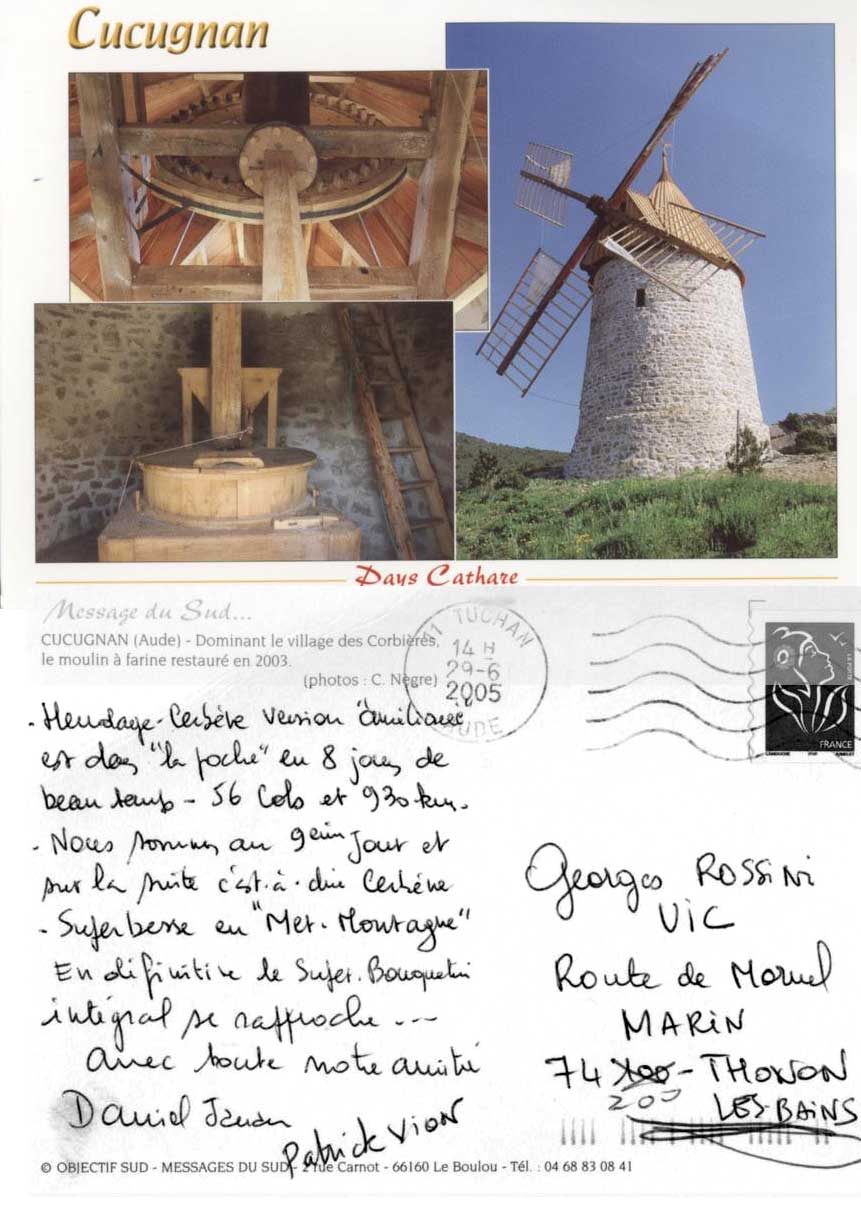 Cucugnan
Pays Cathare
Message du Sud...
CUCUGNAN (Aude) - Dominant le village des Corbières,
le moulin à farine restauré en 2003.
(photos : C. Nègre)
11 TUCHAN
14 H
29-6
2005
AUDE
LA POSTE
FRANCE
- Hendaye-Cerbère version "améliorée"
est dans "la poche" en 8 jours de
beau temps - 56 Cols et 930 km.
- Nous sommes au 9eim Jour et
sur la suite c'est-à-dire Cerbère
- Superbesse en "Mer-Montagne"
En définitive le Super-Bouquetin
intégral se rapproche ---
avec toute notre amitié
Daniel
Patrick VION
Georges ROSSINI
VIC
Route de
MARIN
74 200 - THONON
LES-BAINS
© OBJECTIF SUD - MESSAGES DU SUD - 2 rue Carnot - 66160 Le Boulou - Tél. : 04 68 83 08 41